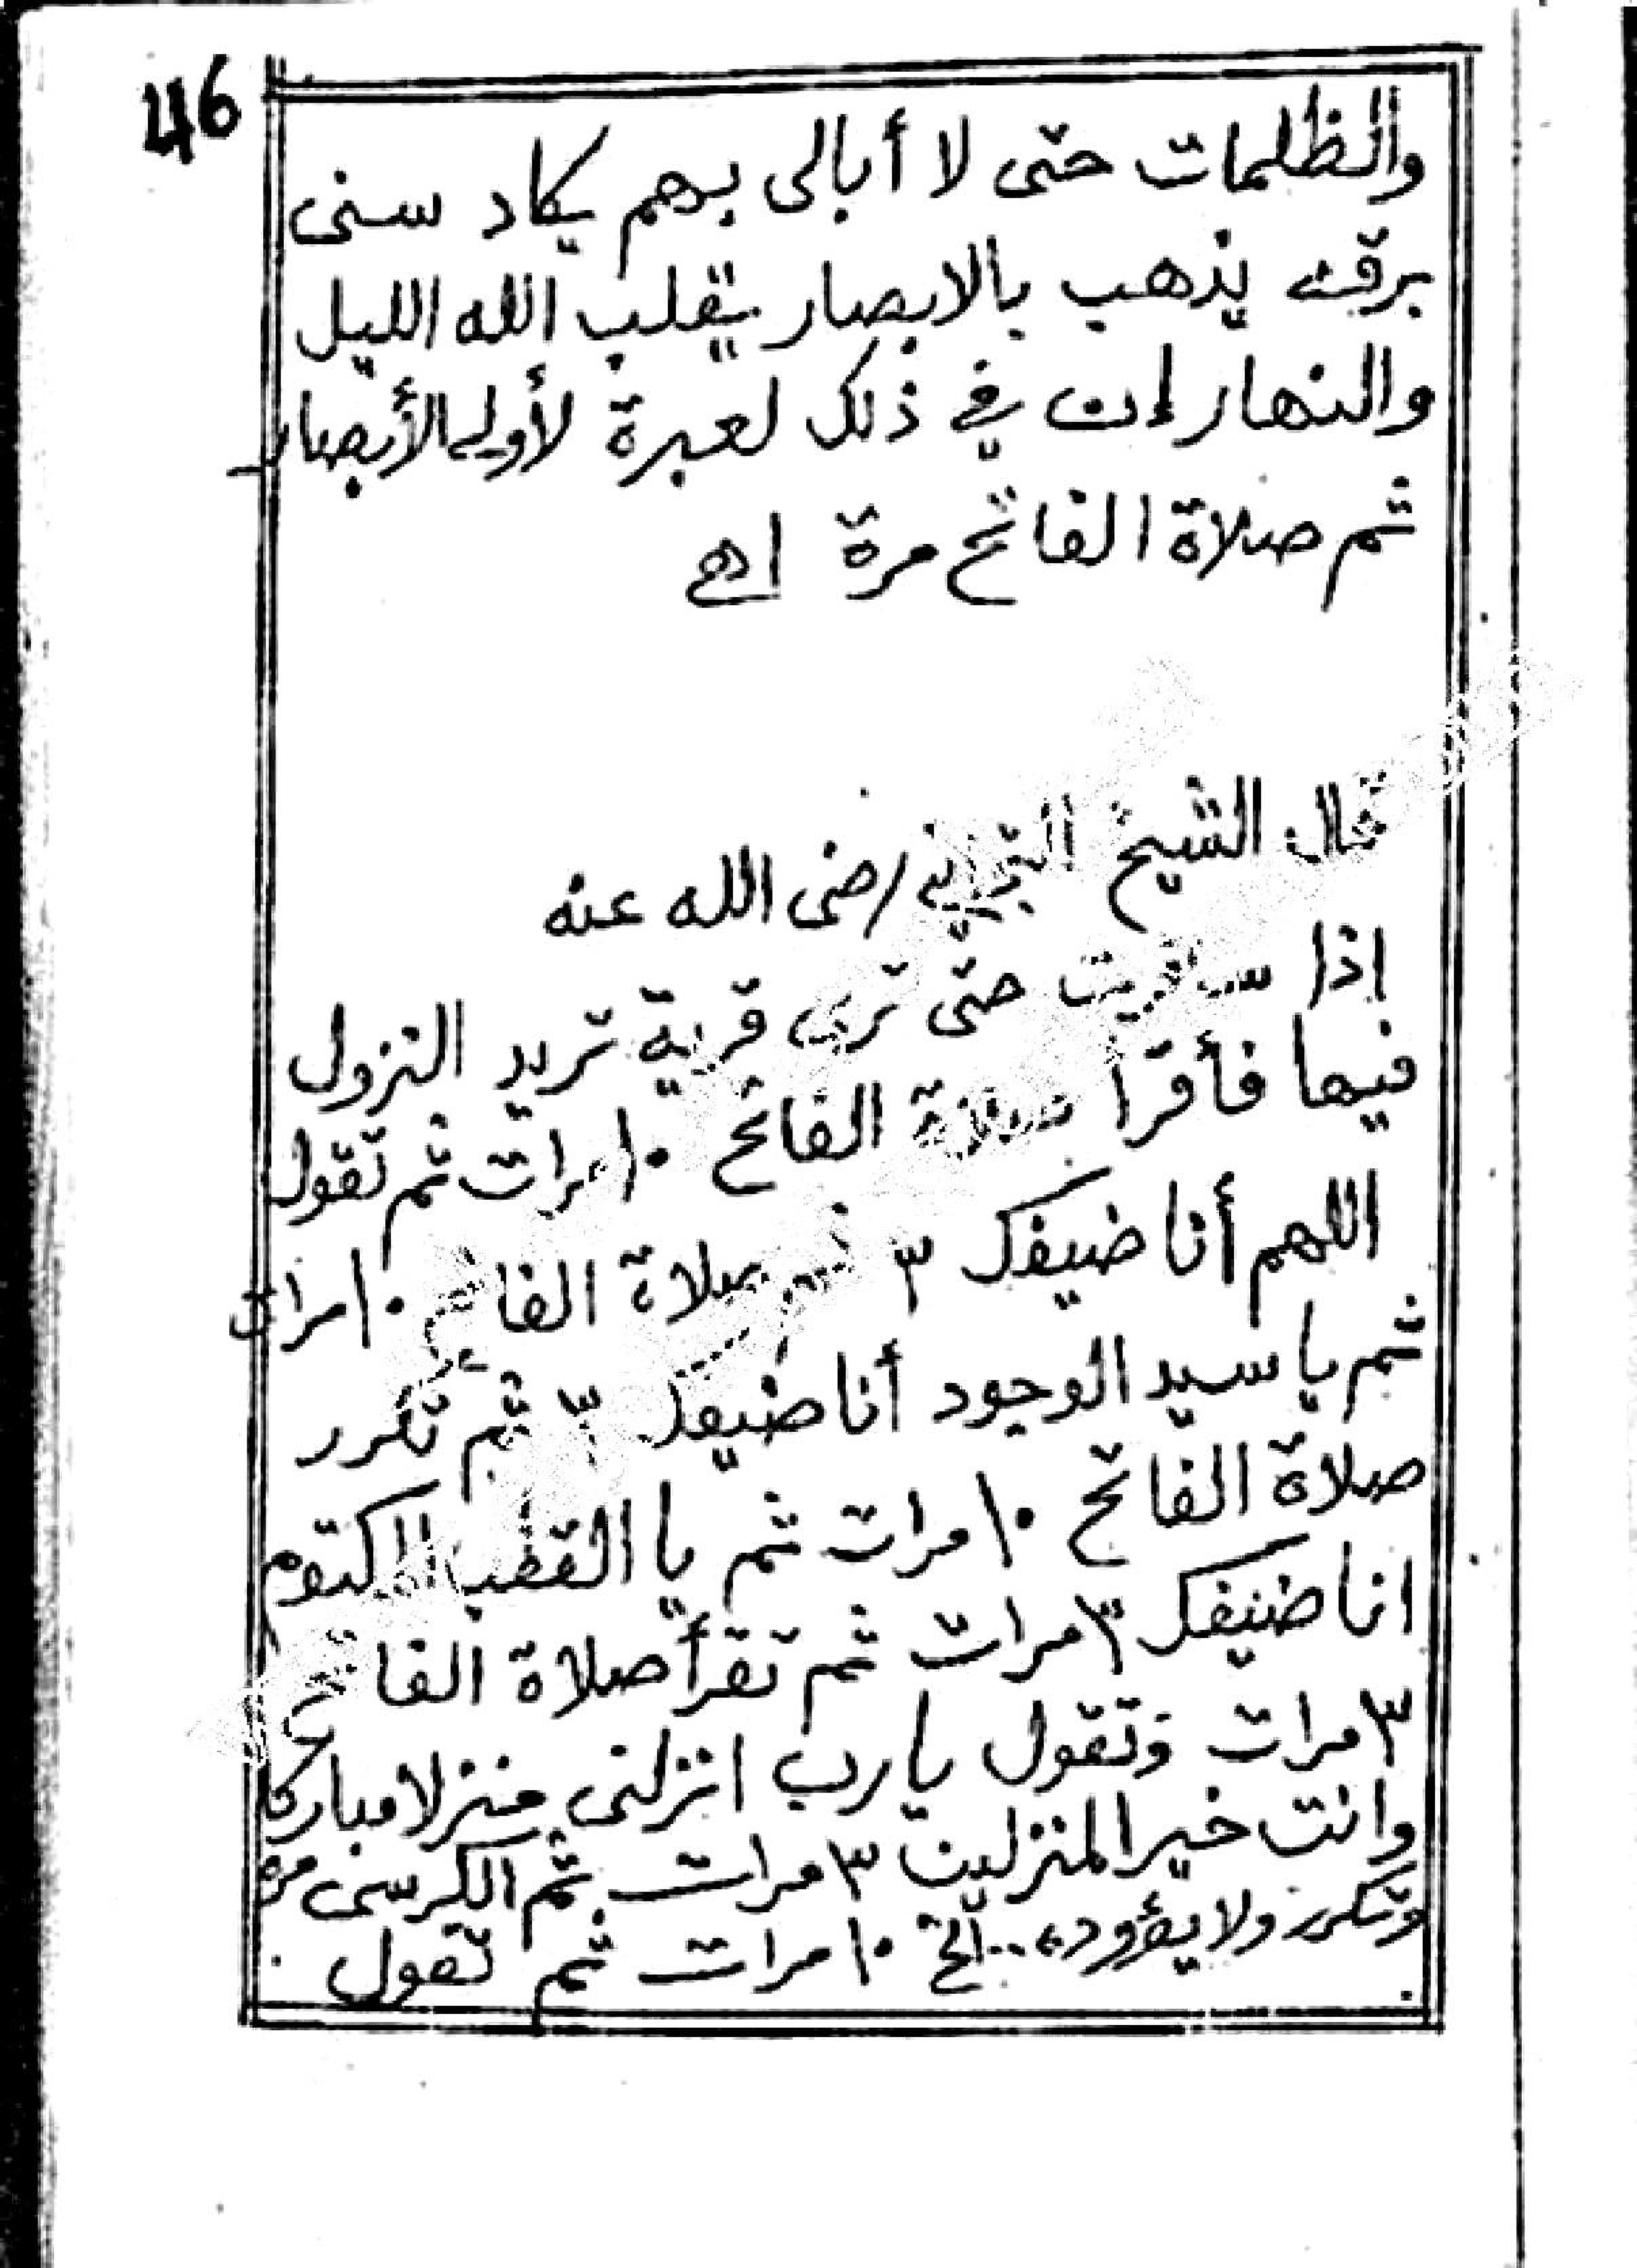 46
والظلمات حتى لا أبالى بهم يكاد سنى
برقه يذهب بالابصار يقلب الله الليل
والنهار إن في ذلك لعبرة لأولى الأبصار
ثم صلاة الفاتح مرة اهـ
قال الشيخ التجاني رضى الله عنه
اذا سافرت حتى ترى قرية تريد النزول
فيها فأقرأ صلاة الفاتح ١٠ مرات ثم تقول
اللهم أنا ضيفك ٣ ثم صلاة الفاتح ١٠ مرات
ثم يا سيد الوجود أنا ضيفك ٣ ثم تكرر
صلاة الفاتح ١٠ مرات ثم يا القطب المكتوم
انا ضيفك ٣ مرات ثم تقرأ صلاة الفاتح
٣ مرات وتقول يارب انزلنى منزلا مباركا
وانت خير المنزلين ٣ مرات ثم الكرسى مرة
وتكرر ولا يؤوده... الخ ١٠ مرات ثم تقول